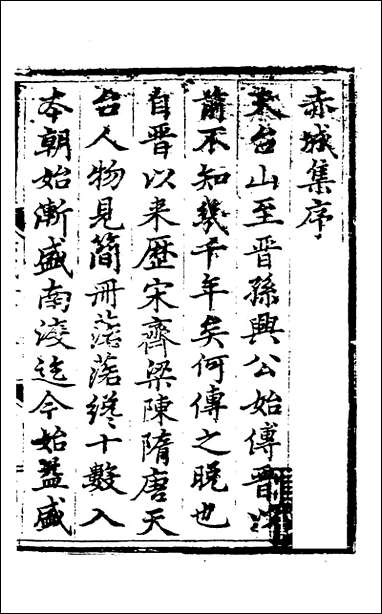 赤城集序
天台山至晉孫興公始傳晉以
前不知幾千年矣何傳之晚也
自晉以来歷宋齊梁陳隋唐天
台人物見簡冊落落纔十數入
本朝始漸盛南渡迄今始益盛